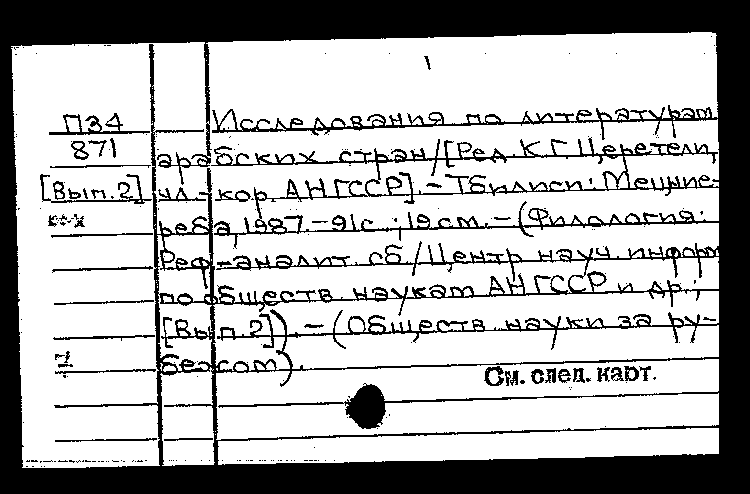 1
П34 Исследования по литературам
871 арабских стран/[Ред. К.Г.Церетели,
[Вып.2] чл.-кор. АН ГССР]. – Тбилиси: Мецние-
реба, 1987. – 91с.; 19см. – (Филология:
Реф.-аналит. сб./Центр науч. информ
по обществ. наукам АН ГССР и др.;
[Вып.2]). – (Обществ. науки за ру-
бежом).
См. след. карт.